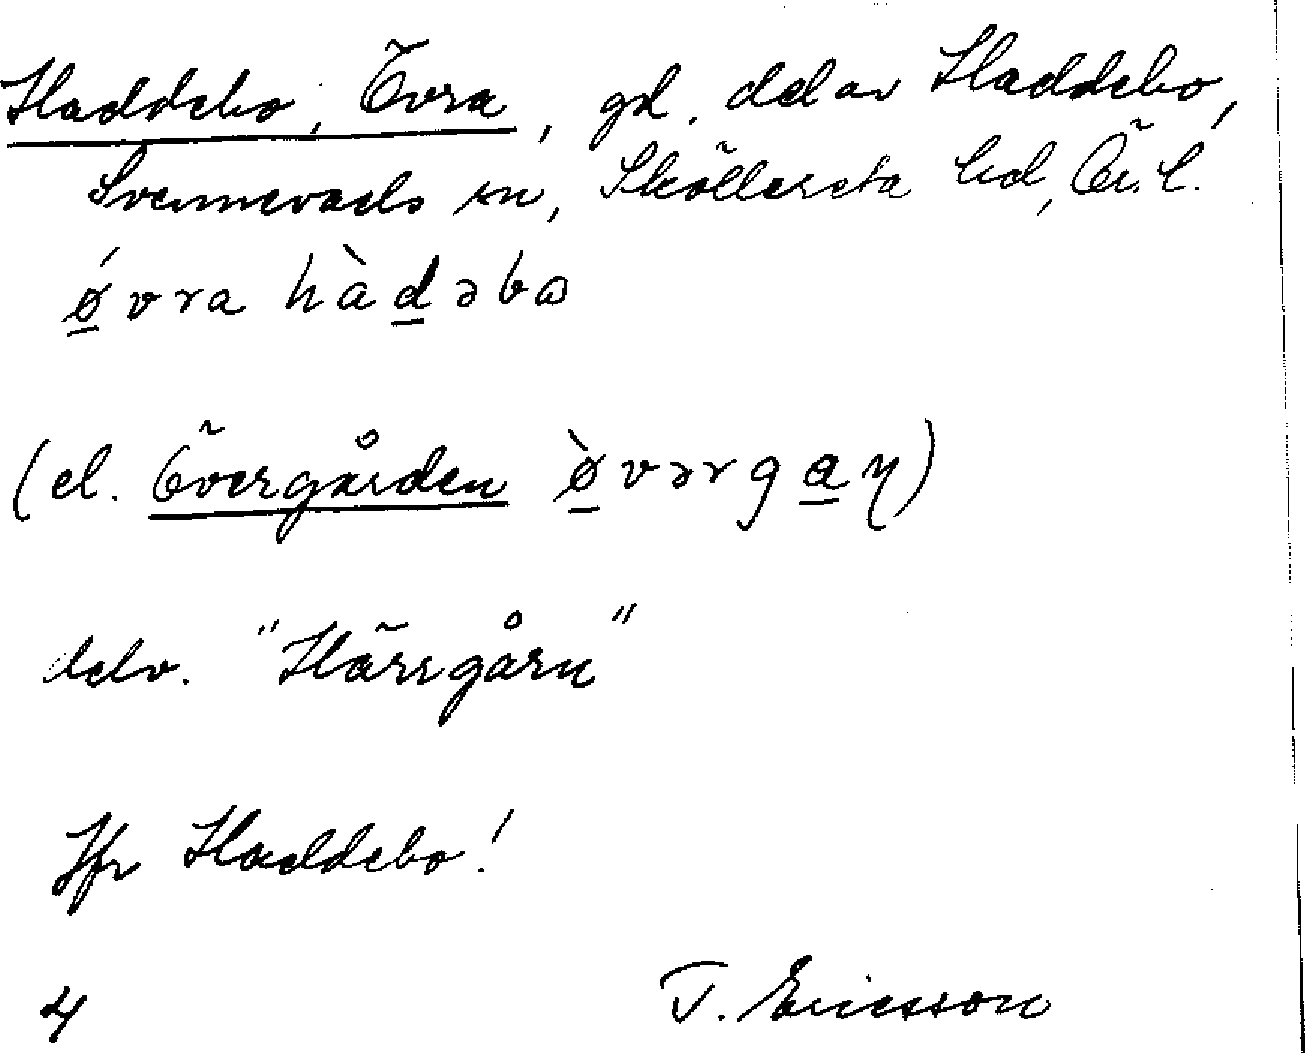 Haddebo, Övra, gd, del av Haddebo,
Svennevads sn, Sköllersta hd, Ör. l.
ǿvra hàdəbɷ
(el. Övergården ø̀vərgaɳ)
delv. "Härrgårn"
Jfr Haddebo!
4 T. Ericsson